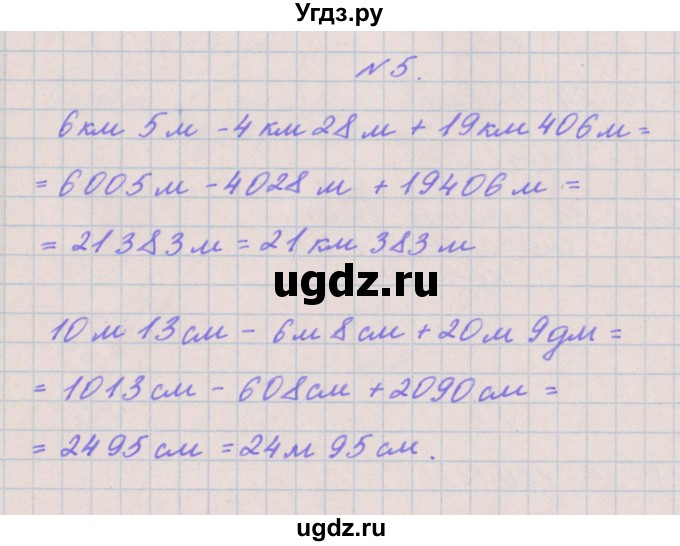 Угдз.ру
№5.
6км 5м - 4км 28м + 19км 406м =
= 6005м - 4028м + 19406м =
= 21383м = 21км 383м
ugdz.ru
10м 13см - 6м 8см + 20м 9дм =
= 1013см - 608см + 2090см =
= 2495см = 24м 95см.
ugdz.ru
ugdz.ru